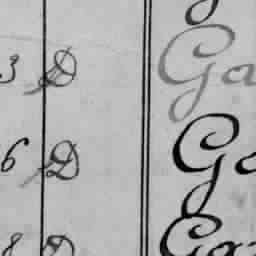 3 D Ga
6 D Ge
8 D Ga